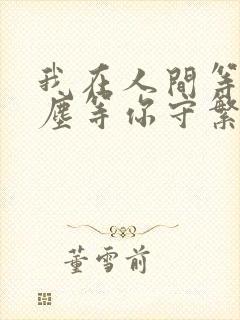 我在人間等
塵等你守繁
董雪前